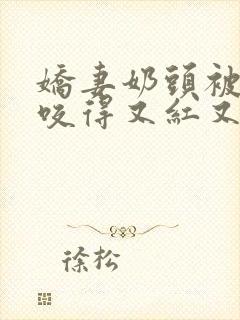 嬌妻奶頭被
咬得又紅又
徐松